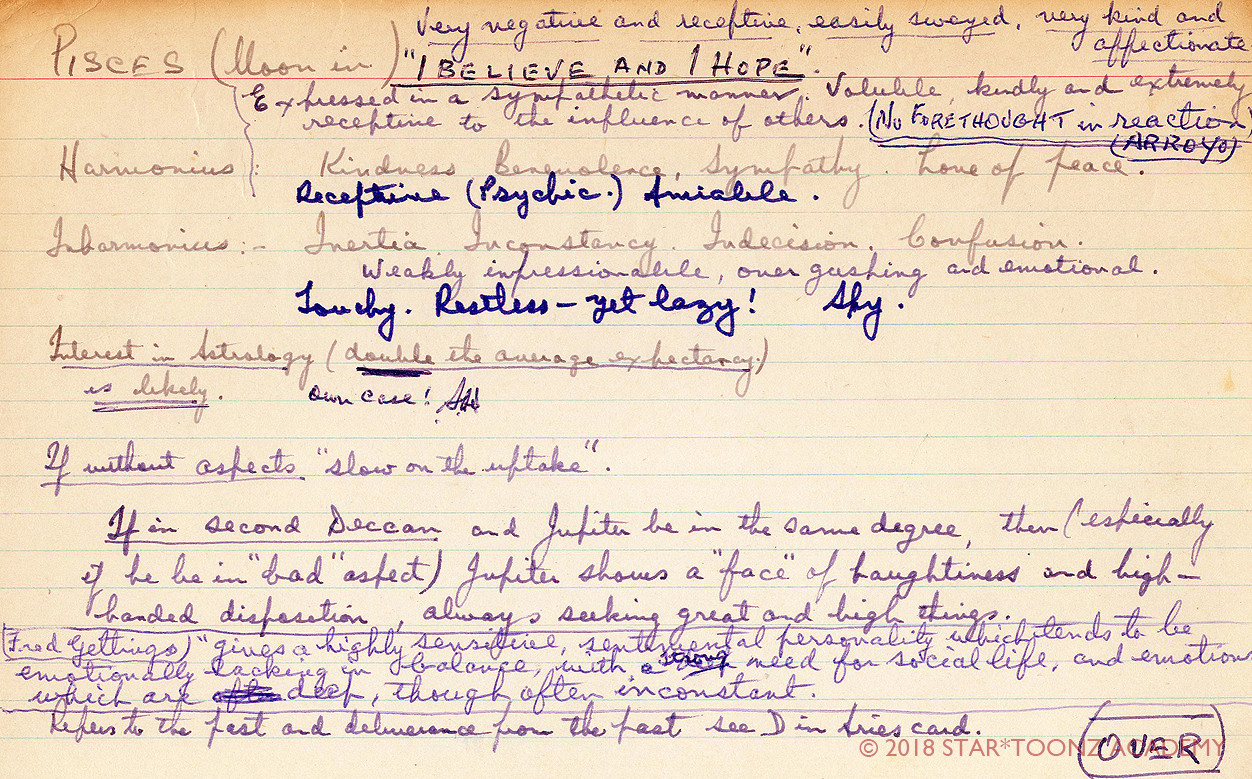 Very negative and receptive, easily swayed, very kind and
affectionate
PISCES (Moon in) "I BELIEVE AND I HOPE".
Expressed in a sympathetic manner. Voluble, kindly and extremely
receptive to the influence of others. (NO FORETHOUGHT in reaction)
(ARROYO)
Harmonius: Kindness Benevolence, Sympathy. Love of peace.
Receptive (Psychic.) Amiable.
Inharmonius:- Inertia Inconstancy. Indecision. Confusion.
Weakly impressionable, over gushing and emotional.
Touchy. Restless - yet lazy! Shy.
Interest in Astrology (double the average expectancy.)
is likely. own case!
If without aspects "slow on the uptake".
If in second Deccan and Jupiter be in the same degree, then (especially
if he be in "bad" aspect) Jupiter shows a "face" of haughtiness and high-
handed disposition, always seeking great and high things.
(Fred Gettings) "gives a highly sensitive, sentimental personality which tends to be
emotionally lacking in balance, with a strong need for social life, and emotions
which are deep, though often inconstant.
Refers to the past and deliverance from the past see D in Aries card.
OVER
© 2018 STAR*TOONZ ACADEMY